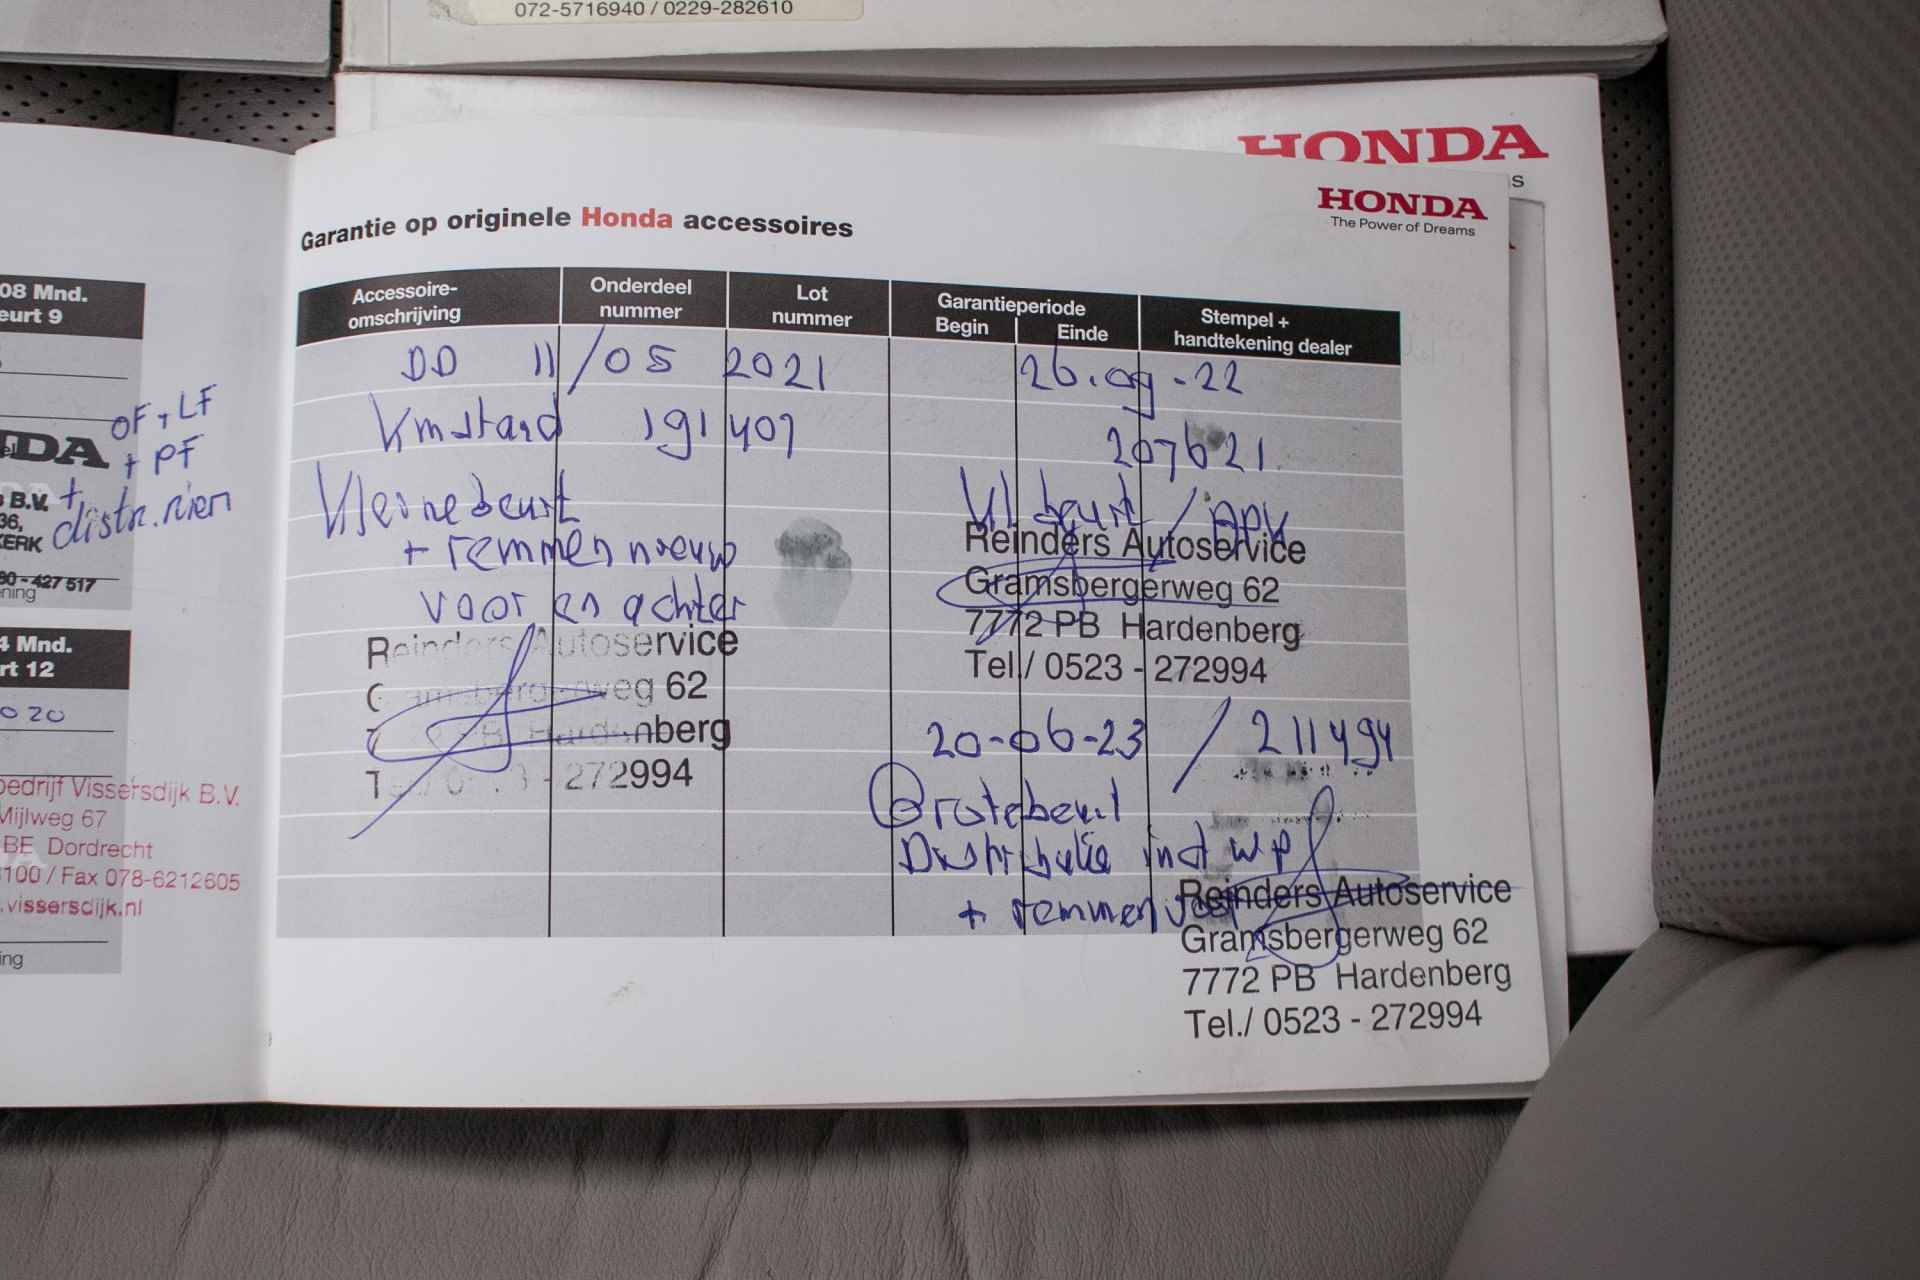 072-5716940 / 0229-282610
HONDA
HONDA
The Power of Dreams
08 Mnd.
eurt 9
OF + LF
DA + PF
B.V. +
distr. riem
36,
KERK
80 - 427 517
4 Mnd.
rt 12
020
bedrijf Vissersdijk B.V.
Mijlweg 67
BE Dordrecht
100 / Fax 078-6212605
.vissersdijk.nl
ing
Garantie op originele Honda accessoires
Accessoire-omschrijving
Onderdeel nummer
Lot nummer
Garantieperiode
Begin
Einde
Stempel + handtekening dealer
DD 11/05 2021
Kmstand 191401
Kleinebeurt
+ remmen nieuw
voor en achter
Reinders Autoservice
Gramsbergerweg 62
PB Hardenberg
272994
26.09-22
207621
Kl beurt / APK
Reinders Autoservice
Gramsbergerweg 62
7772 PB Hardenberg
Tel./ 0523 - 272994
20-06-23 / 211494
Grotebeurt
Distributie incl wp
+ remmen
Reinders Autoservice
Gramsbergerweg 62
7772 PB Hardenberg
Tel./ 0523 - 272994